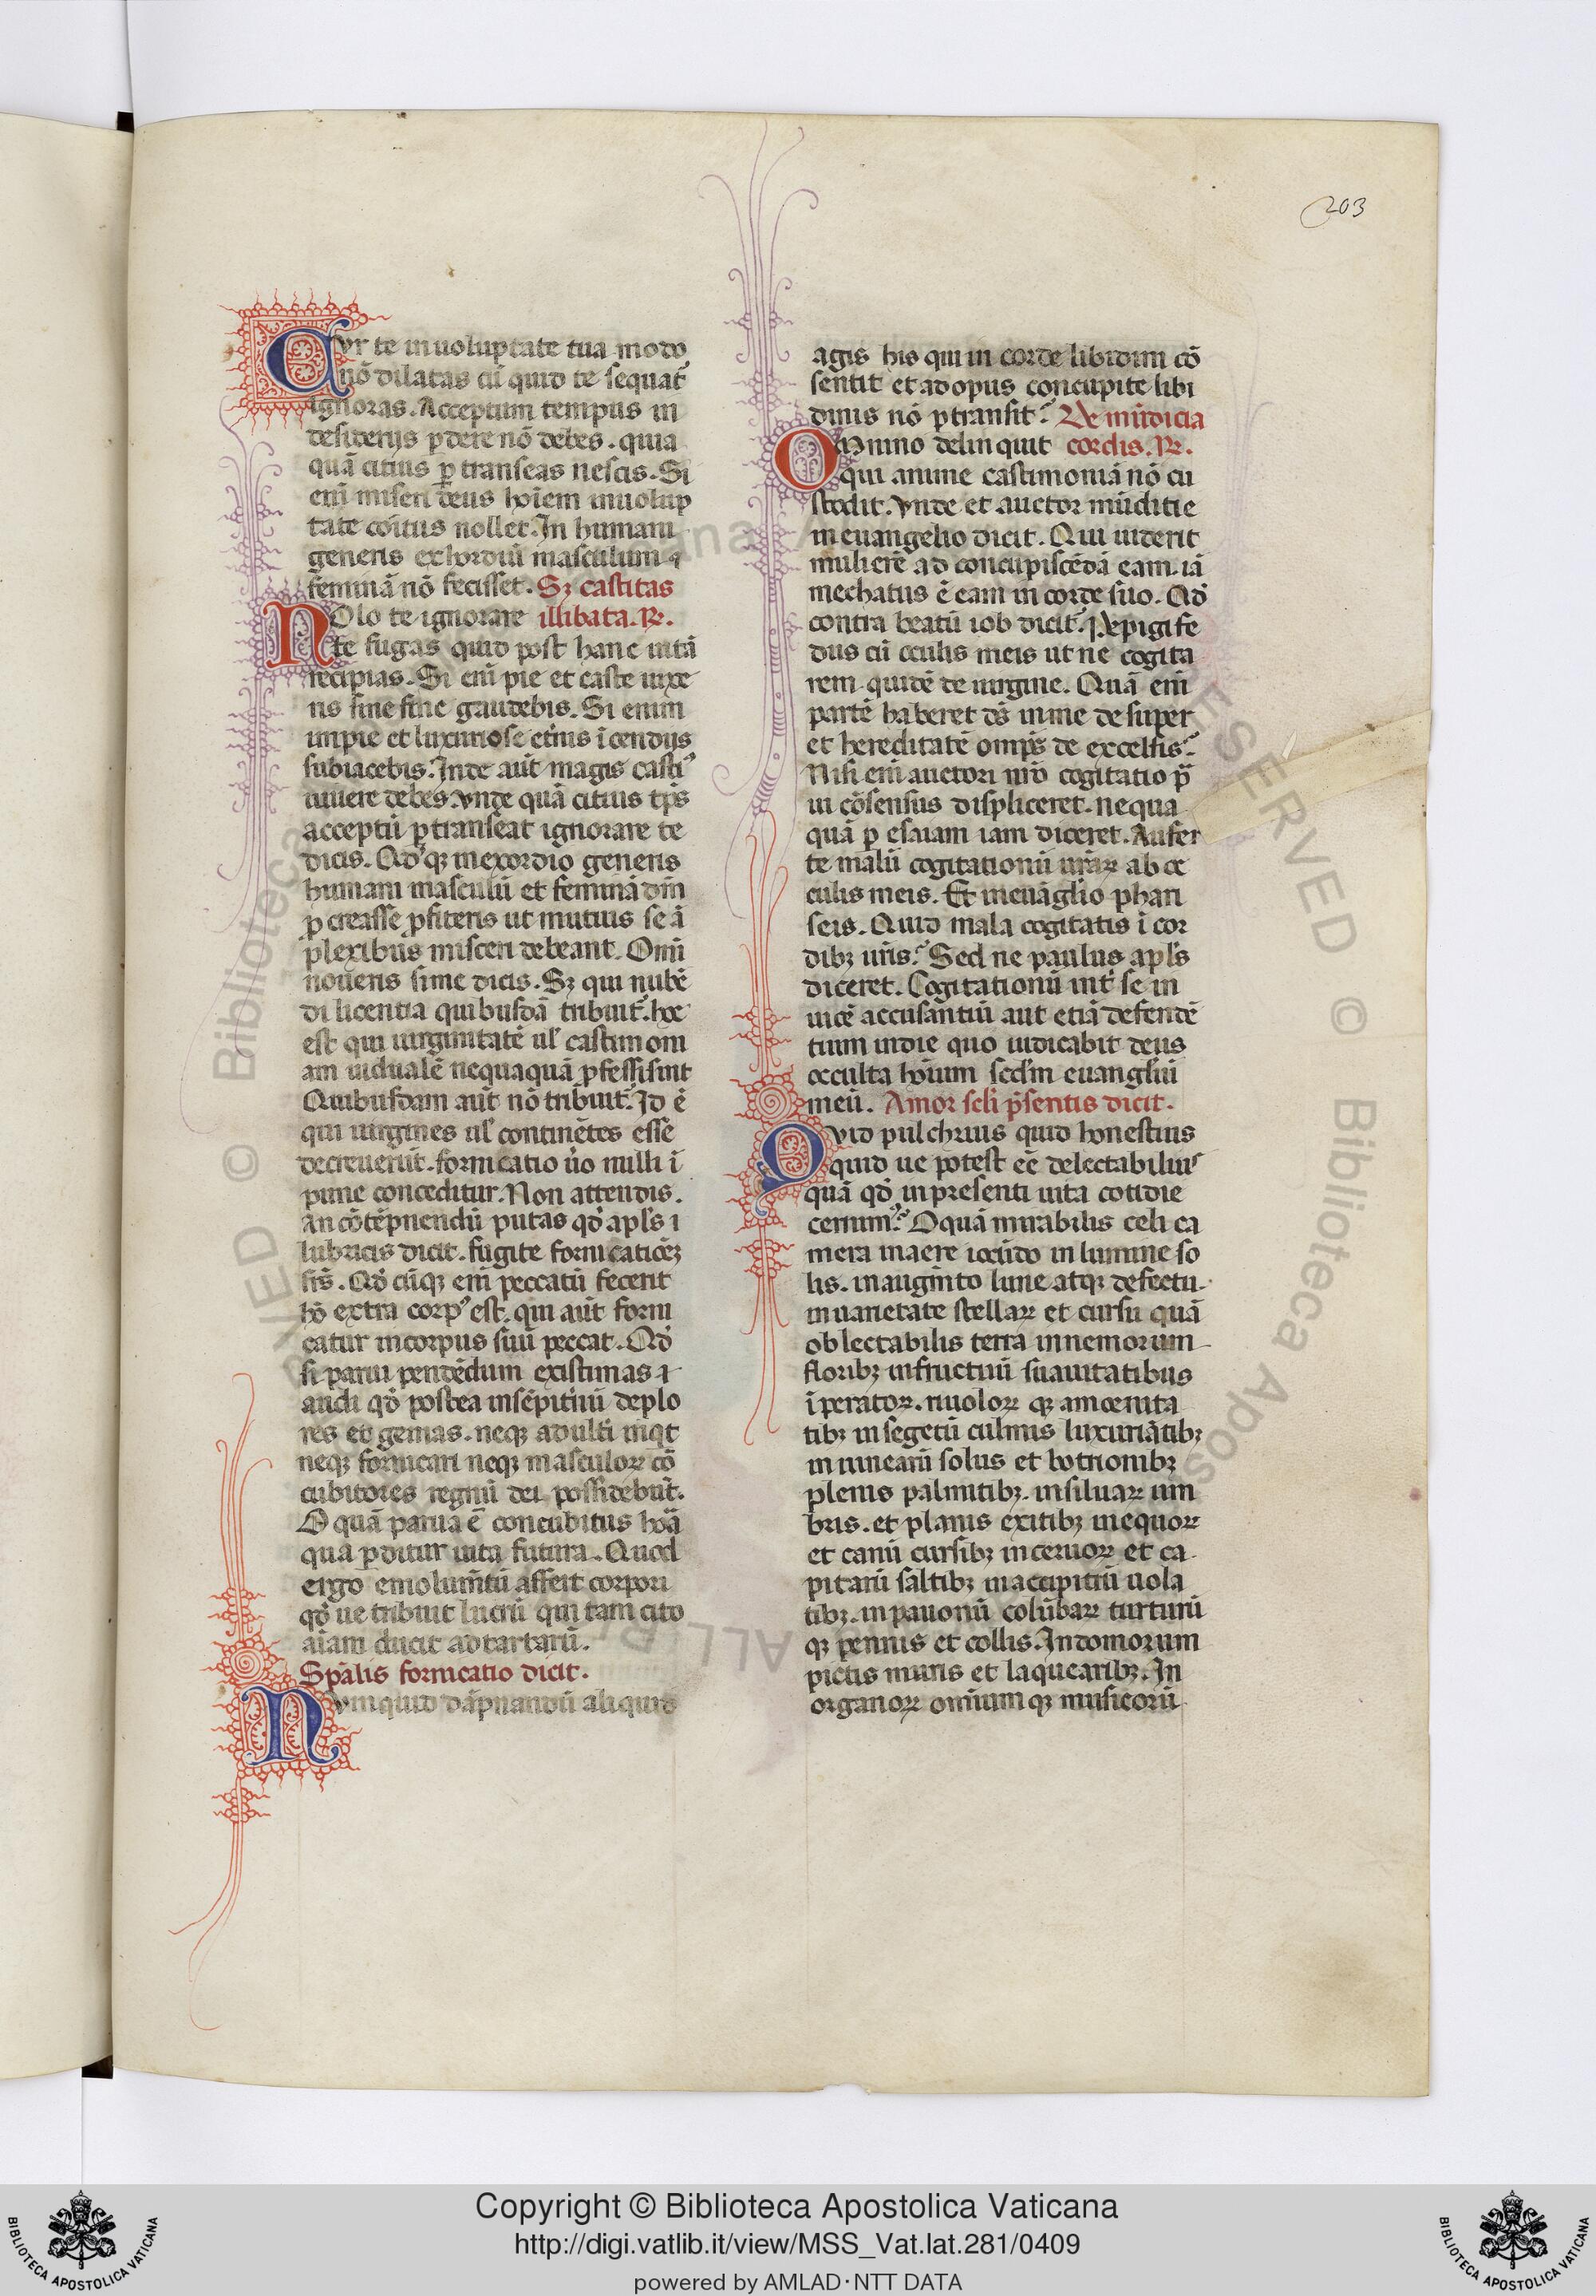 203
Cvr te in uoluptate tua modo
nō dilatas cū quid te sequat᷑
ignoras. Acceptum tempus in
desiderijs ꝑdere nō debes. quia
quā citius ꝑtranseas nescis. Si
eni᷑ miseri deus hoi᷑em in uolup
tate coitus nollet. In humani
generis exhordiū masculum ⁊
feminā nō fecisset. Sꝫ castitas
Nolo te ignorare illibata. R.
te fugas quid post hanc uitā
recipias. Si eni᷑ pie et caste uixe
ris sine fine gaudebis. Si enim
impie et luxuriose et᷑nis īcendijs
subiacebis. Inde aūt magis casti᷒
uiuere debes. vnde quā citius tp̄s
acceptū ꝑtranseat ignorare te
dicis. Qd̓ qꝫ in exordio generis
humani masculū et feminā dn̄m
ꝓcreasse ꝓfiteris ut mutuis se ā
plexibus misceri debeant. Om̄i
noueris sine dicis. Sꝫ qui nubē
di licentia quibusdā tribuit᷑. hoc
est qui uirginitatē ul̓ castimoni
am uidualē nequaquā ꝓfessi sint
Quibusdam aūt nō tribuit᷑. Id ē
qui uirgines ul̓ continētes esse
decreuerūt. fornicatio ūo nulli ī
pune conceditur. Non attendis.
an cōtēpnendū putas qd̓ apl̓s i
lubricis dicit. fugite fornicationeꝫ
frs̄. Qd̓ cūqꝫ eni᷑ peccatū fecerit
hō extra corp᷒ est. qui aūt forni
catur in corpus suū peccat. Qd̓
si parui pendēdum existimas ⁊
audi qd̓ postea in sēpit̓nū deplo
res et gemas. neqꝫ adult̓i inqt
neqꝫ fornicari neqꝫ masculoꝝ cō
cubitores regnū dei possidebūt.
O quā parua ē concubitus hora
qua ꝑditur uita futura. Quod
ergo emolum̄tū affert corpori
qd̓ ue tribuit lucrū qui tam cito
aīam ducit ad tartarū.
Spālis fornicatio dicit.
Nvmquid dāpnandū aliquid
agis his qui in corde libidini cō
sentit et ad opus concupite libi
dinis nō ꝑtransit? De mūdicia
Omnino delinquit cordis. R.
qui anime castimoniā nō cu
stodit. vnde et auctor mūditie
in euangelio dicit. Qui uiderit
mulierē ad concupiscēdā eam. iā
mechatus ē eam in corde suo. Qd̓
contra beatū iob dicit. Pepigi fe
dus cū oculis meis ut ne cogita
rem quidē de uirgine. Quā eni᷑
partē haberet ds̄ in me desuper
et hereditatē omp̄s de excelsis?
Nisi eni᷑ auctori nr̄o cogitatio p̄
ui cōsensus displiceret. nequa
quā ꝑ esaiam iam diceret. Aufer
te malū cogitationū ur̄aꝝ ab o
culis meis. Et in euāglio phari
seis. Quid mala cogitatis ī cor
dibꝫ ur̄is? Sed ne paulus apl̓s
diceret. Cogitationū int̓ se in
uicē accusantiū aut etiā defendē
tium in die quo iudicabit deus
occulta hoīum sedm̄ euangl̓iū
meū. Amor scl̓i p̄sentis dicit.
Qvid pulchrius quid honestius
quid ue potest eē delectabiliu᷒
quā qd̓ in presenti uita cotidie
cernim᷒? O quā mirabilis celi ca
mera in aere iocūdo in lumine so
lis. in augm̄to lune atqꝫ defectu.
in uarietate stellaꝝ et cursu quā
oblectabilis terra in nemorum
floribꝫ in fructuū suauitatibus
ī peratoꝝ. riuoloꝝ qꝫ amoenita
tibꝫ in segetū culmis luxuriātibꝫ
in uinearū solus et botrionibꝫ
plenis palmitibꝫ. in siluaꝝ um
bris. et planis exitibꝫ in equoꝝ
et canū cursibꝫ in ceruoꝝ et ca
pitarū saltibꝫ in accipitrū uola
tibꝫ. in pauonū colūbaꝝ turturū
qꝫ pennis et collis. In domorum
pictis muris et laquearibꝫ. In
organoꝝ omīum qꝫ musicorū
Copyright © Biblioteca Apostolica Vaticana
http://digi.vatlib.it/view/MSS_Vat.lat.281/0409
powered by AMLAD·NTT DATA
BIBLIOTECA APOSTOLICA VATICANA
BIBLIOTECA APOSTOLICA VATICANA